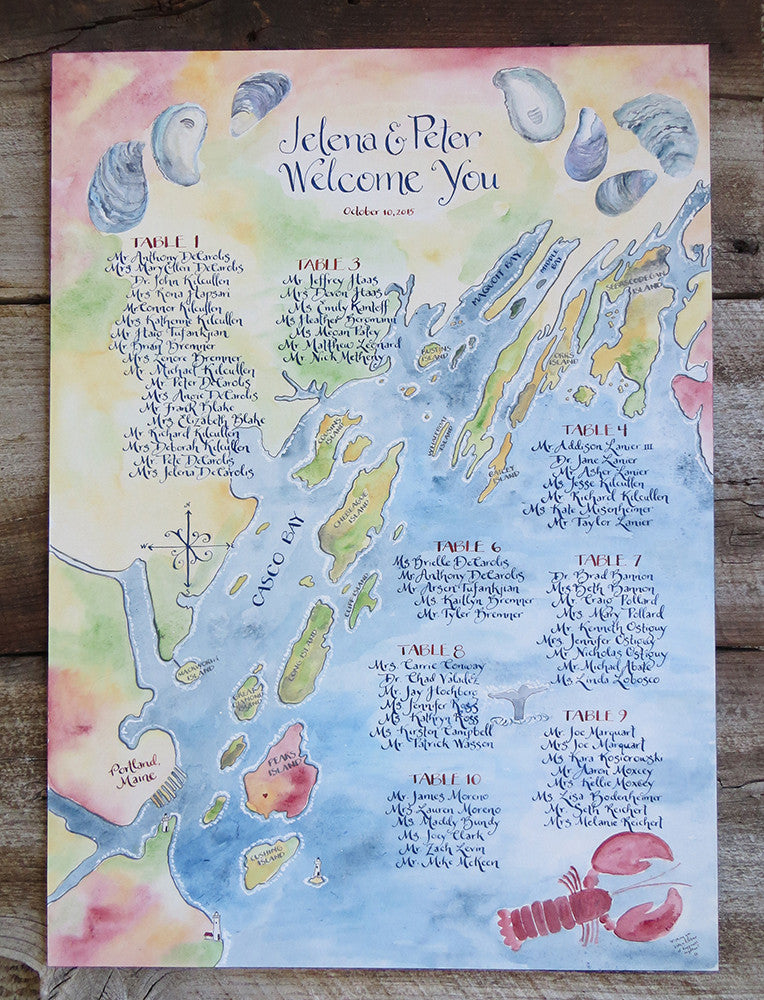 Jelena & Peter
Welcome You
October 10, 2015
TABLE 1
Mr Anthony DeCarolis
Mrs Mary Ellen DeCarolis
Dr. John Kilcullen
Mrs Rona Hapsari
Mr Connor Kilcullen
Mrs Katherine Kilcullen
Mr Haig Tufankjian
Mr Brian Bremner
Mrs Lenore Bremner
Mr Michael Kilcullen
Mr Peter DeCarolis
Mrs Angie DeCarolis
Mr Frank Blake
Mrs Elizabeth Blake
Mr Richard Kilcullen
Mrs Deborah Kilcullen
Mr Pete DeCarolis
Mrs Jelena DeCarolis
TABLE 3
Mr Jeffrey Haas
Mrs Devon Haas
Ms Emily Kantoff
Ms Heather Bergmann
Ms Megan Paley
Mr Matthew Leonard
Mr Nick Metheny
MAQUOIT BAY
MIDDLE BAY
SEBASCODEGAN
ISLAND
BUSTINS
ISLAND
ORRS
ISLAND
COUSINS
ISLAND
ISLAND
BAILEY
ISLAND
CHEBEAGUE
ISLAND
CASCO BAY
CLIFF ISLAND
LONG ISLAND
MACKWORTH
ISLAND
GREAT
DIAMOND
ISLAND
PEAKS
ISLAND
CUSHING
ISLAND
Portland,
Maine
TABLE 4
Mr Addison Lanier III
Dr Jane Lanier
Mr Asher Lanier
Ms Jesse Kilcullen
Mr Richard Kilcullen
Ms Kate Misenheimer
Mr Taylor Lanier
TABLE 6
Ms Brielle DeCarolis
Mr Anthony DeCarolis
Mr Arsen Tufankjian
Ms Kaitlyn Bremner
Mr Tyler Bremner
TABLE 7
Dr. Brad Bannon
Mrs Beth Bannon
Mr Craig Pollard
Mrs Mary Pollard
Mr Kenneth Ostiguy
Mrs Jennifer Ostiguy
Mr Nicholas Ostiguy
Mr Michael Abate
Ms Linda Lobosco
TABLE 8
Mrs Carrie Conway
Dr Chad Valadez
Mr Jay Hochberg
Ms Jennifer Ross
Ms Kathryn Ross
Ms Kirsten Campbell
Mr Patrick Wasson
TABLE 9
Mr Joe Marquart
Mrs Joe Marquart
Ms Kara Kosierowski
Mr Aaron Moxcey
Mrs Kellie Moxcey
Ms Lisa Bodenheimer
Mr Seth Reichert
Mrs Melanie Reichert
TABLE 10
Mr James Moreno
Mrs Lauren Moreno
Ms Maddy Bundy
Ms Joey Clark
Mr Zach Levin
Mr. Mike McKeon